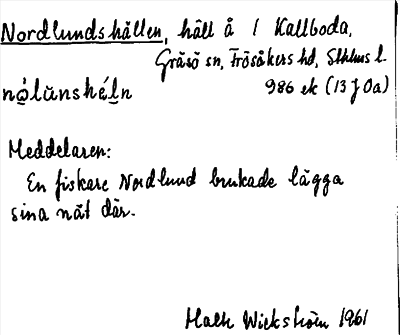 Nordlundshällen, häll å / Kallboda,
Gräsö sn, Frösåkers hd, Sthlms l.
nǫ́lŭnshéln 986 ek (13 J 0a)
Meddelaren:
En fiskare Nordlund brukade lägga
sina nät där.
Wickström 1961